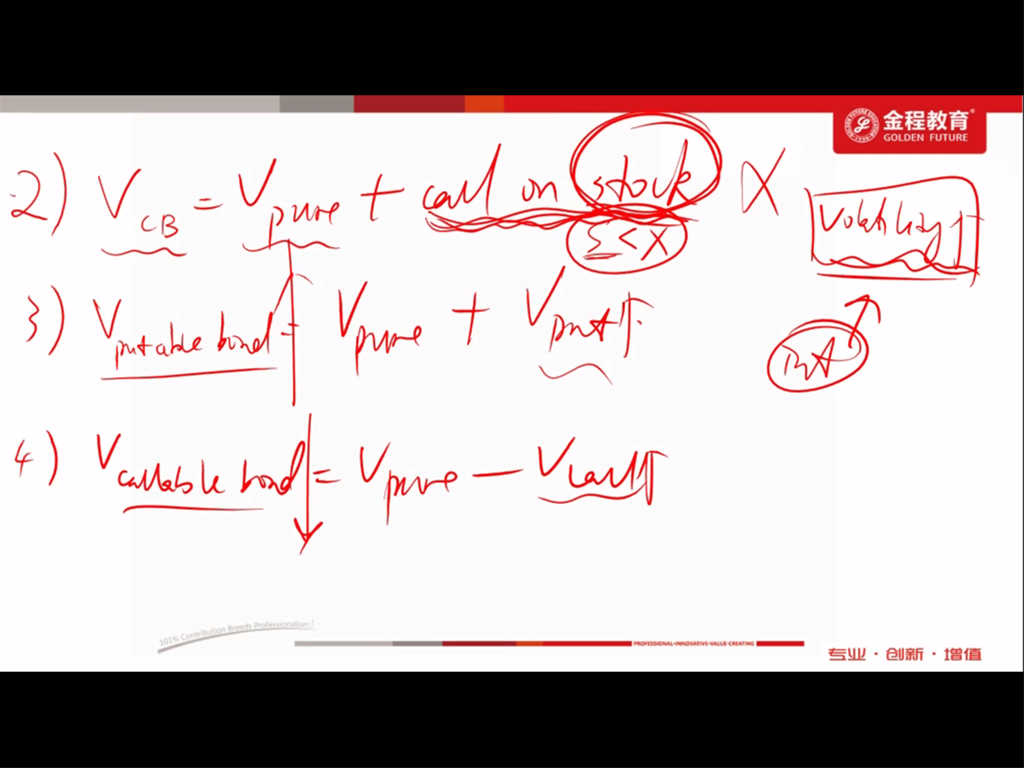 金程教育®
GOLDEN FUTURE
2) V CB = V pure + call on stock X
Σ < X
Volatility ↑
3) V putable bond = V pure + V put ↑
int
4) V callable bond = V pure − V call ↑
101% Contribution Breeds Professionalism!
PROFESSIONAL·INNOVATIVE·VALUE CREATING
专业·创新·增值